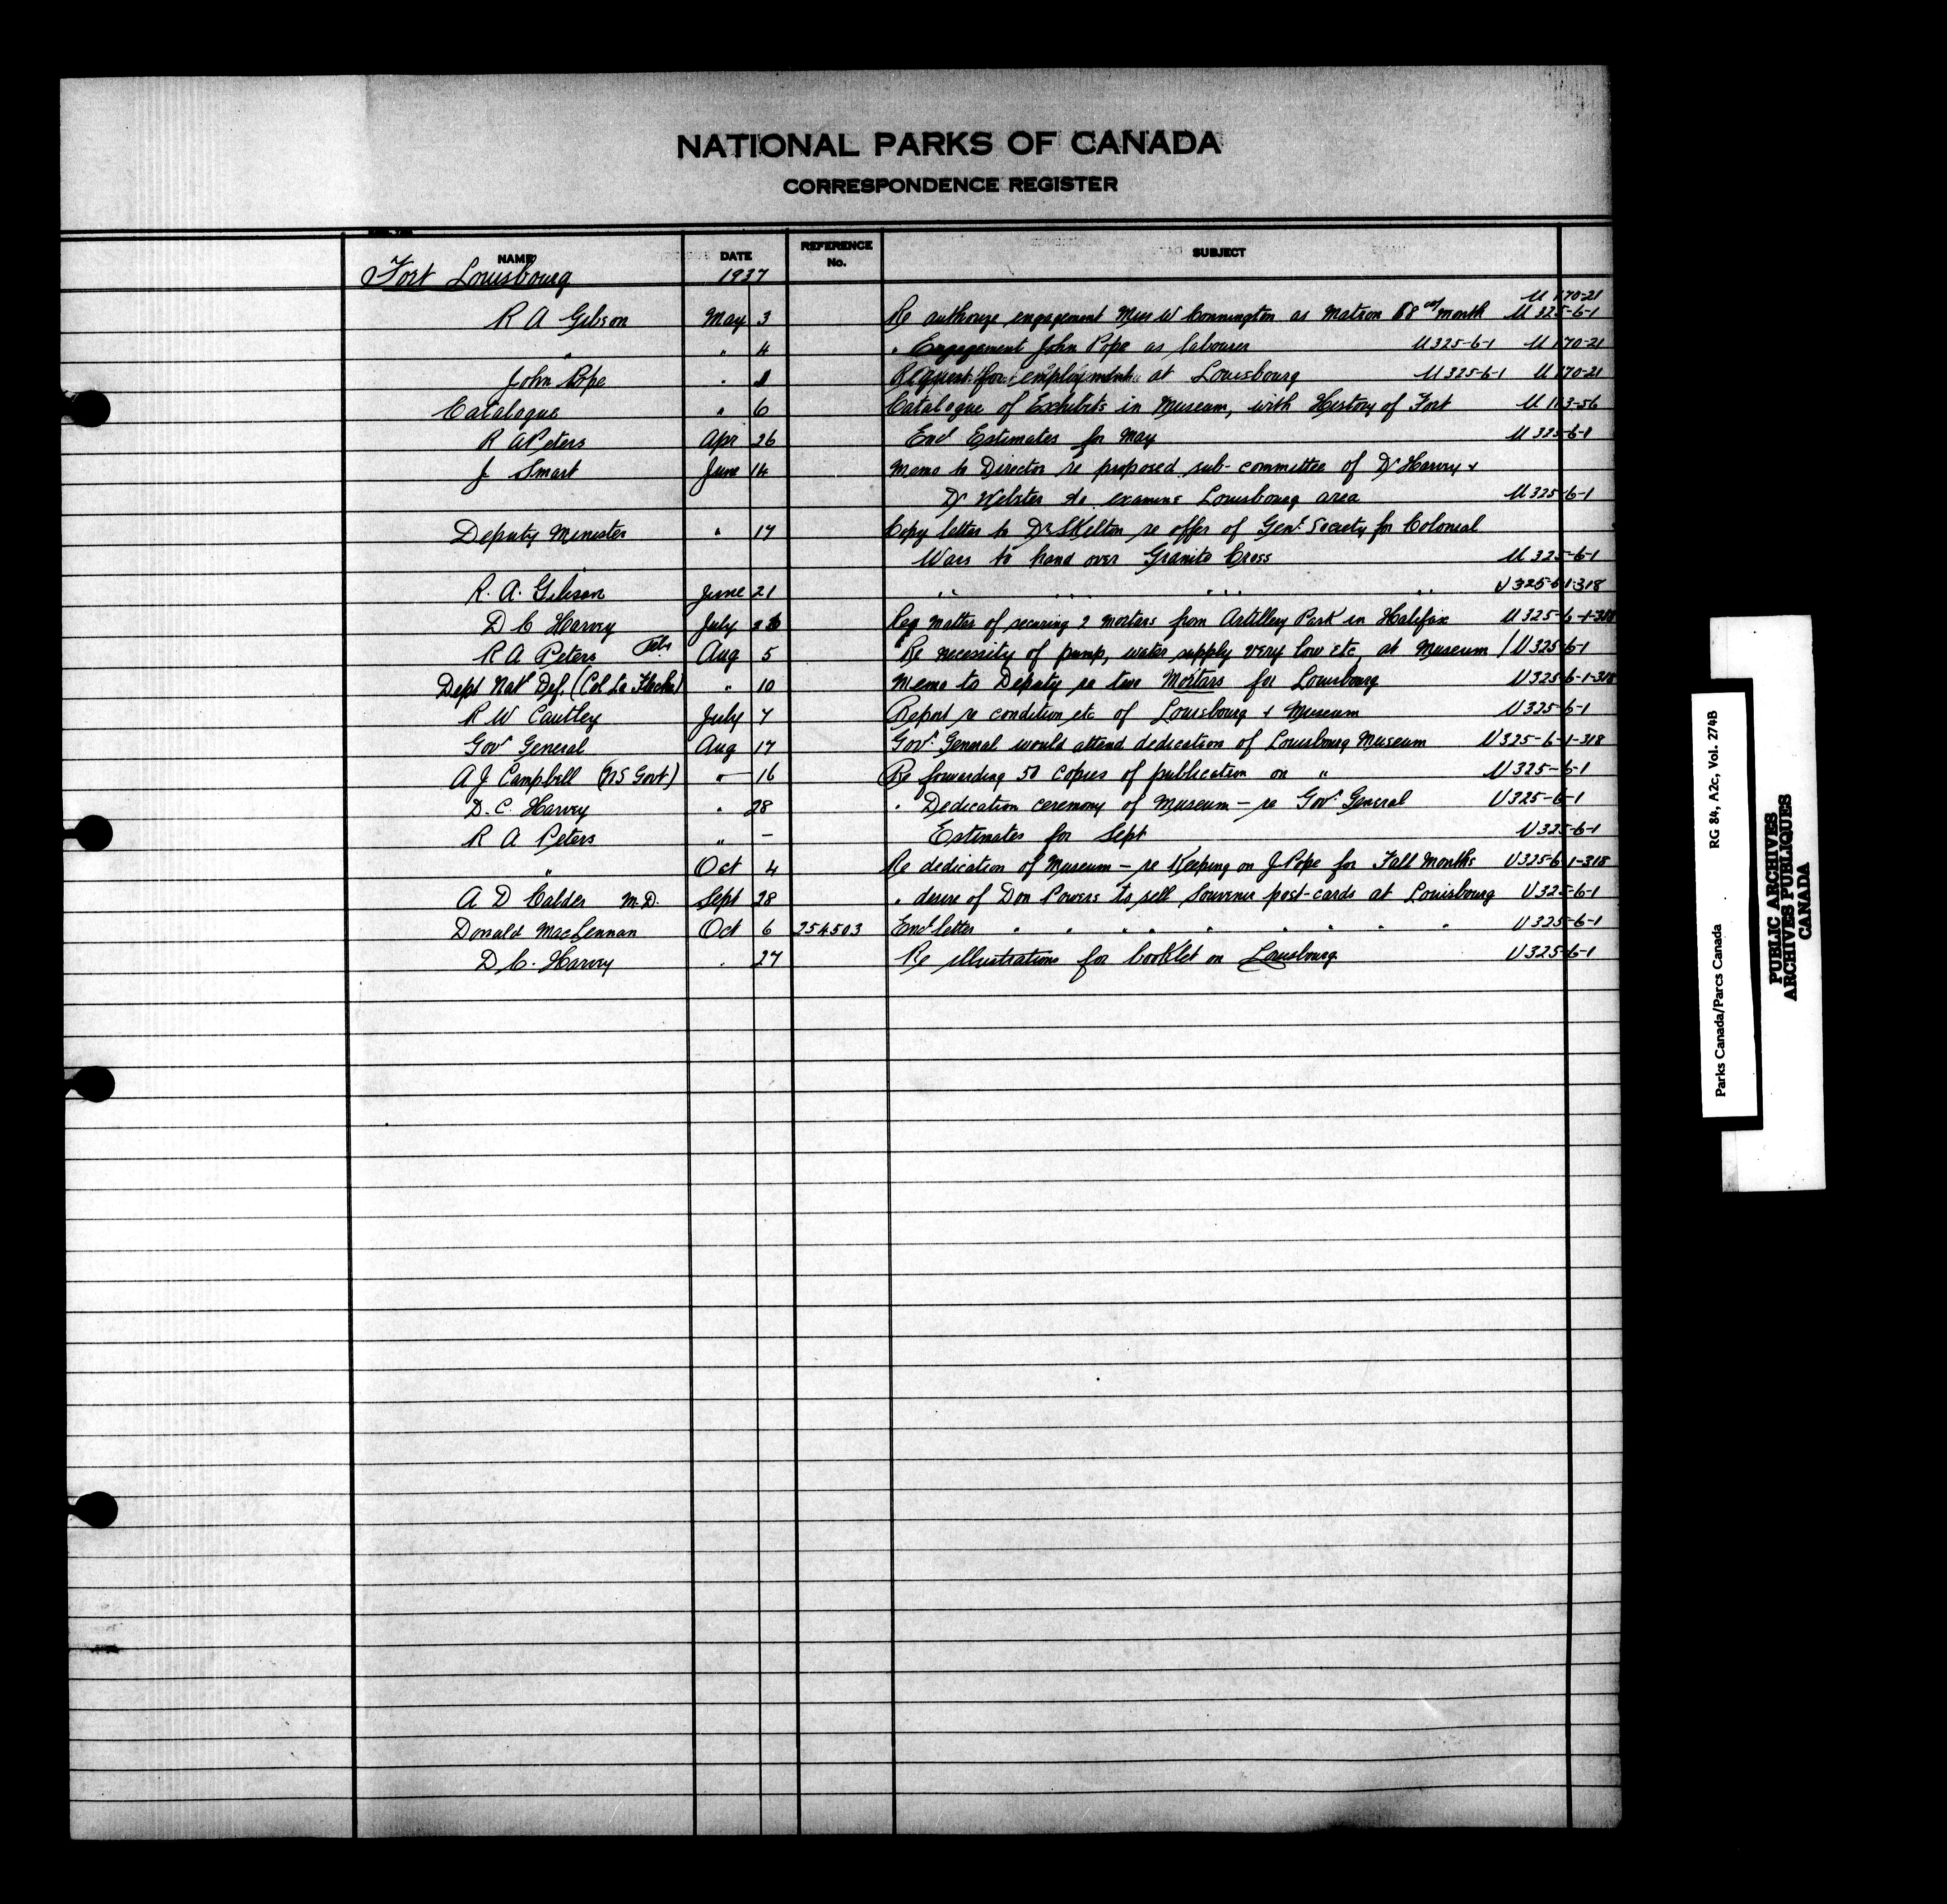 NATIONAL PARKS OF CANADA
CORRESPONDENCE REGISTER
NAME DATE REFERENCE No. SUBJECT
Fort Louisbourg 1937
U 170-21
R A Gibson May 3 Re authorize engagement Miss W Connington as Matron month U 325-6-1
" " 4 " Engagement John Pope as labourer U325-6-1 U 170-21
John Pope " 1 Request for employment at Louisbourg U325-6-1 U 170-21
Catalogue " 6 Catalogue of Exhibits in Museum, with History of Fort U 113-56
R A Peters Apr 26 Encl Estimates for May U 325-6-1
J Smart June 14 Memo to Director re proposed sub-committee of Dr Harvey +
Dr Webster to examine Louisbourg area U325-6-1
Deputy Minister " 17 Copy letter to Dr Skelton re offer of Genl Society for Colonial
Wars to hand over Granite Cross U 325-6-1
R. A. Gibson June 21 " " " " U325-6-1-318
D C Harvey July Reg matter of securing 2 mortars from Artillery Park in Halifax U325-6-1-318
R A Peters Tel. Aug 5 Re necessity of pump, water supply very low etc, at Museum / U325-6-1
Dept Natl Def. (Col La Fleche) " 10 Memo to Deputy re two Mortars for Louisbourg U325-6-1-318
R W Cautley July 7 Report re condition etc of Louisbourg + Museum U325-6-1
Govr General Aug 17 Govr. General would attend dedication of Louisbourg Museum U325-6-1-318
A J Campbell (NS Govt) " 16 Re forwarding 50 copies of publication on " U325-6-1
D. C. Harvey " 28 " Dedication ceremony of Museum - re Govr General U325-6-1
R A Peters " - Estimates for Sept U325-6-1
" Oct 4 Re dedication of Museum - re Keeping on J Pope for Fall Months U325-6-1-318
A D Calder M.D. Sept 28 " desire of Don Powers to sell Souvenir post-cards at Louisbourg U325-6-1
Donald MacLennan Oct 6 254503 Encl letter " " " " " " " " " U325-6-1
D C. Harvey " 27 Re illustrations for booklet on Louisbourg U325-6-1
Parks Canada/Parcs Canada RG 84, A2c, Vol. 274B
PUBLIC ARCHIVES
ARCHIVES PUBLIQUES
CANADA